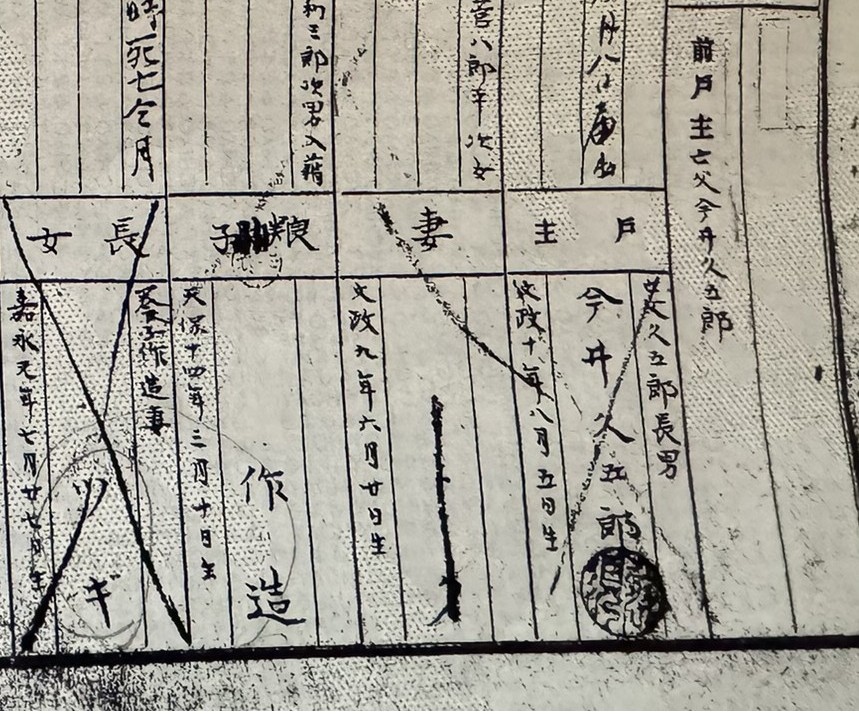 前戸主亡父今井久五郎
月八日届出
戸主
亡父久五郎長男
今井久五郎
文政十年八月五日生
八郎 次女
妻
文政九年六月廿日生
三郎次男入籍
粮子
作造
天保十四年三月十日生
時一死七今月
長女
養子作造妻
ツギ
嘉永元年七月廿七日生